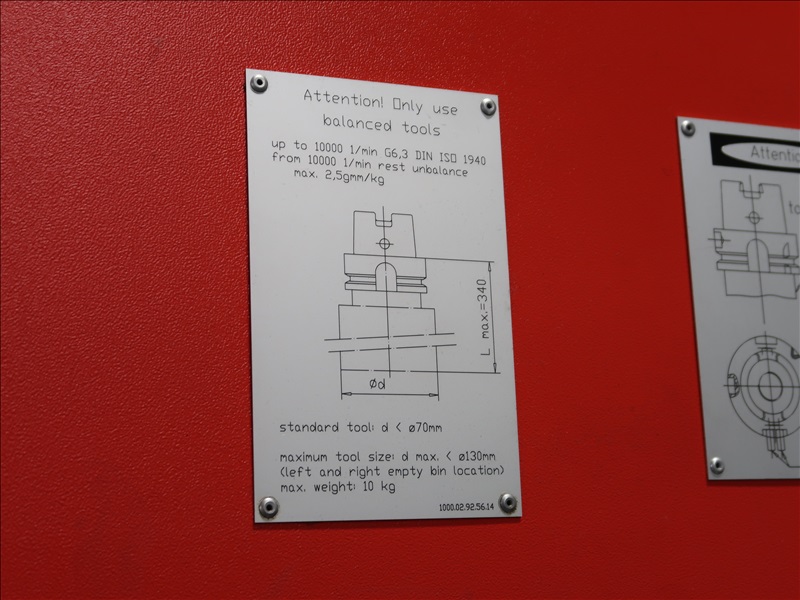 Attention! Only use
balanced tools
up to 10000 1/min G6,3 DIN ISO 1940
from 10000 1/min rest unbalance
max. 2,5gmm/kg
L max.=340
Ød
standard tool: d < ø70mm
maximum tool size: d max. < ø130mm
(left and right empty bin location)
max. weight: 10 kg
1000.02.92.56.14